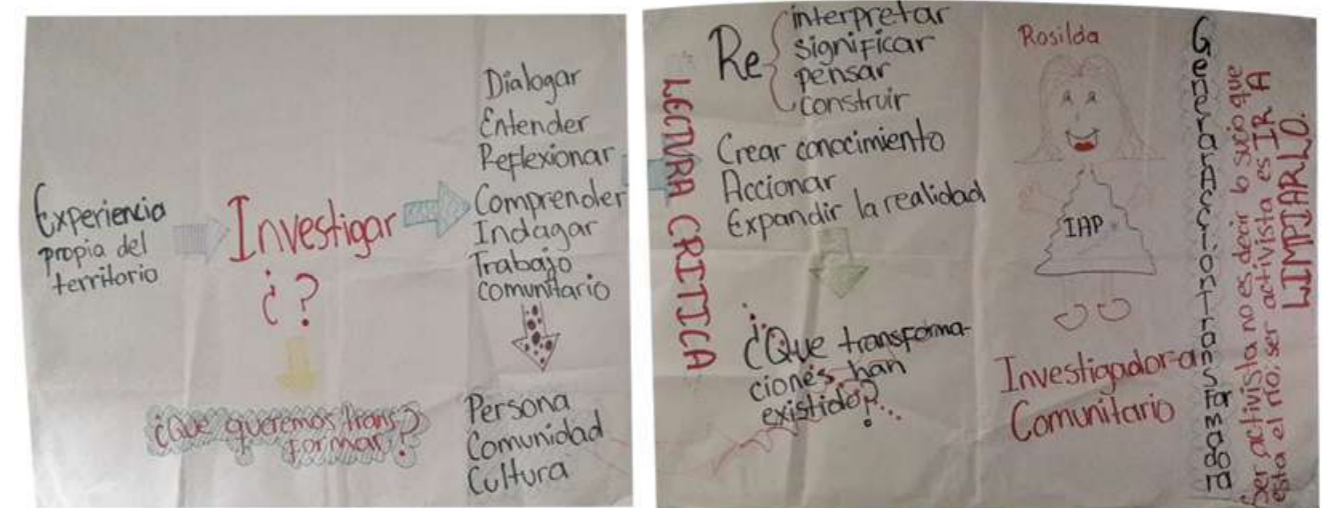 Experiencia
propia del
territorio
Investigar
¿?
¿Que queremos trans
formar?
Dialogar
Entender
Reflexionar
Comprender
Indagar
Trabajo
comunitario
Persona
Comunidad
Cultura
LECTURA CRITICA
Re
interpretar
significar
pensar
construir
Crear conocimiento
Accionar
Expandir la realidad
¿Que transforma-
ciones han
existido?...
Rosilda
IAP
Investigador-a
Comunitario
Generar Acción Transformadora
Ser activista no es decir lo sucio que
esta el río, ser activista es IR A
LIMPIARLO.